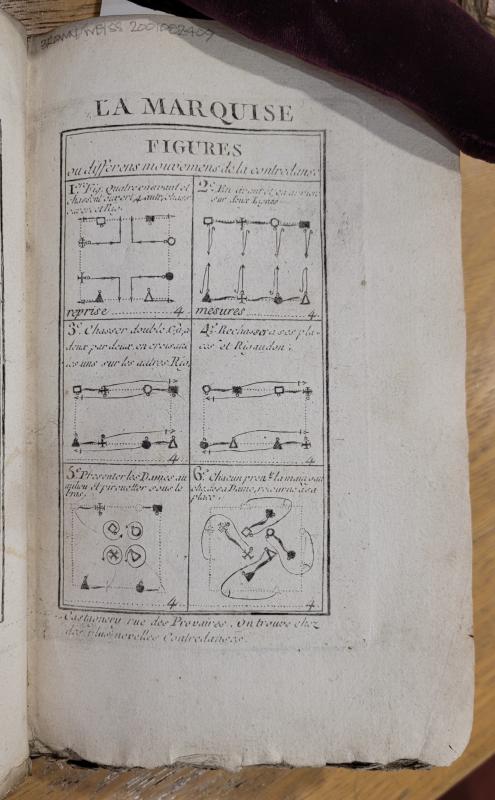 BROWN/WEISS
LA MARQUISE
FIGURES
ou différens mouvemens de la contredanse
1re Fig. Quatre en avant et
reprise 4
2e En avant et en arriere
sur deux Lignes
mesures 4
3e Chasser double
deux par deux, en croisant
les uns sur les autres Rig.
4
4e Rechasser a ses pla-
ces et Rigaudon.
4
5e Presenter les Dames au
milieu et pirouetter sous le
bras,
4
6e Chacun pren.t la main
de sa Dame, retourne a sa
place.
4
Castagnery rue des Provaires. On trouve chez
des plus novelles Contredanses.